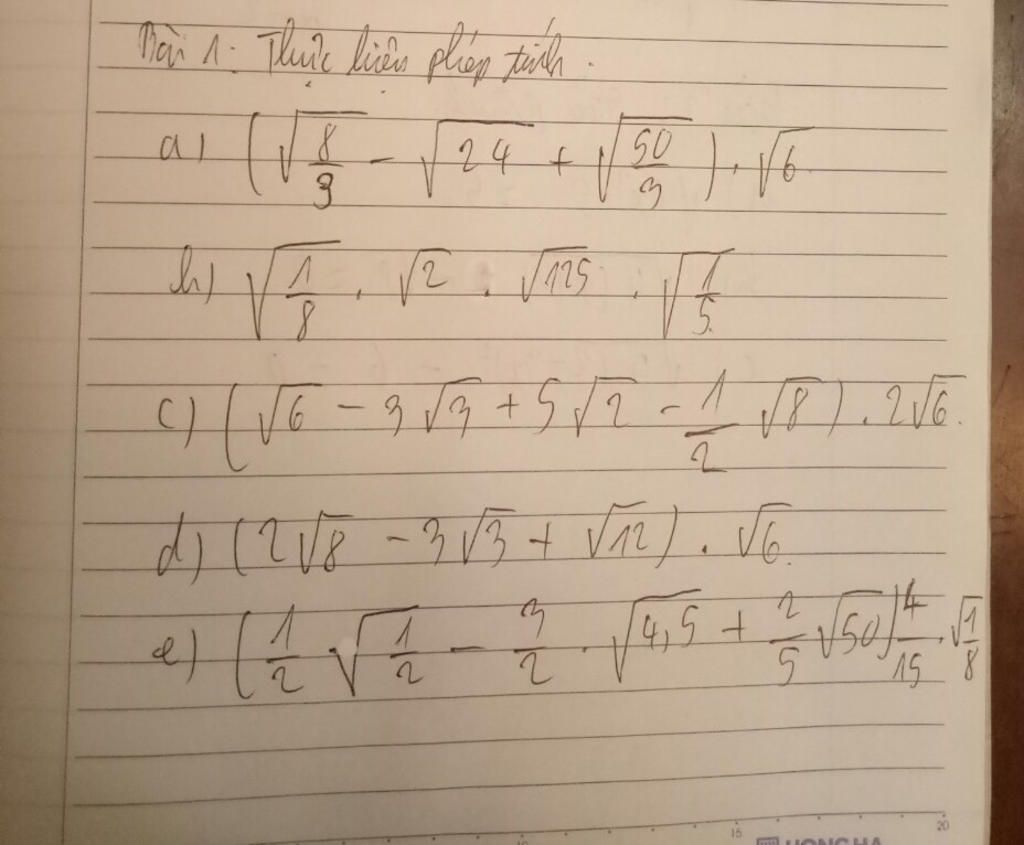 Bài 1: Thực hiện phép tính.
a) (√(8/3) - √24 + √(50/3)) . √6
b) √(1/8) . √2 . √125 . √(1/5)
c) (√6 - 3√3 + 5√2 - 1/2 √8) . 2√6.
d) (2√8 - 3√3 + √12) . √6.
e) (1/2 √(1/2) - 3/2 . √4,5 + 2/5 √50) 4/15 . √(1/8)
15 20
HONG HA